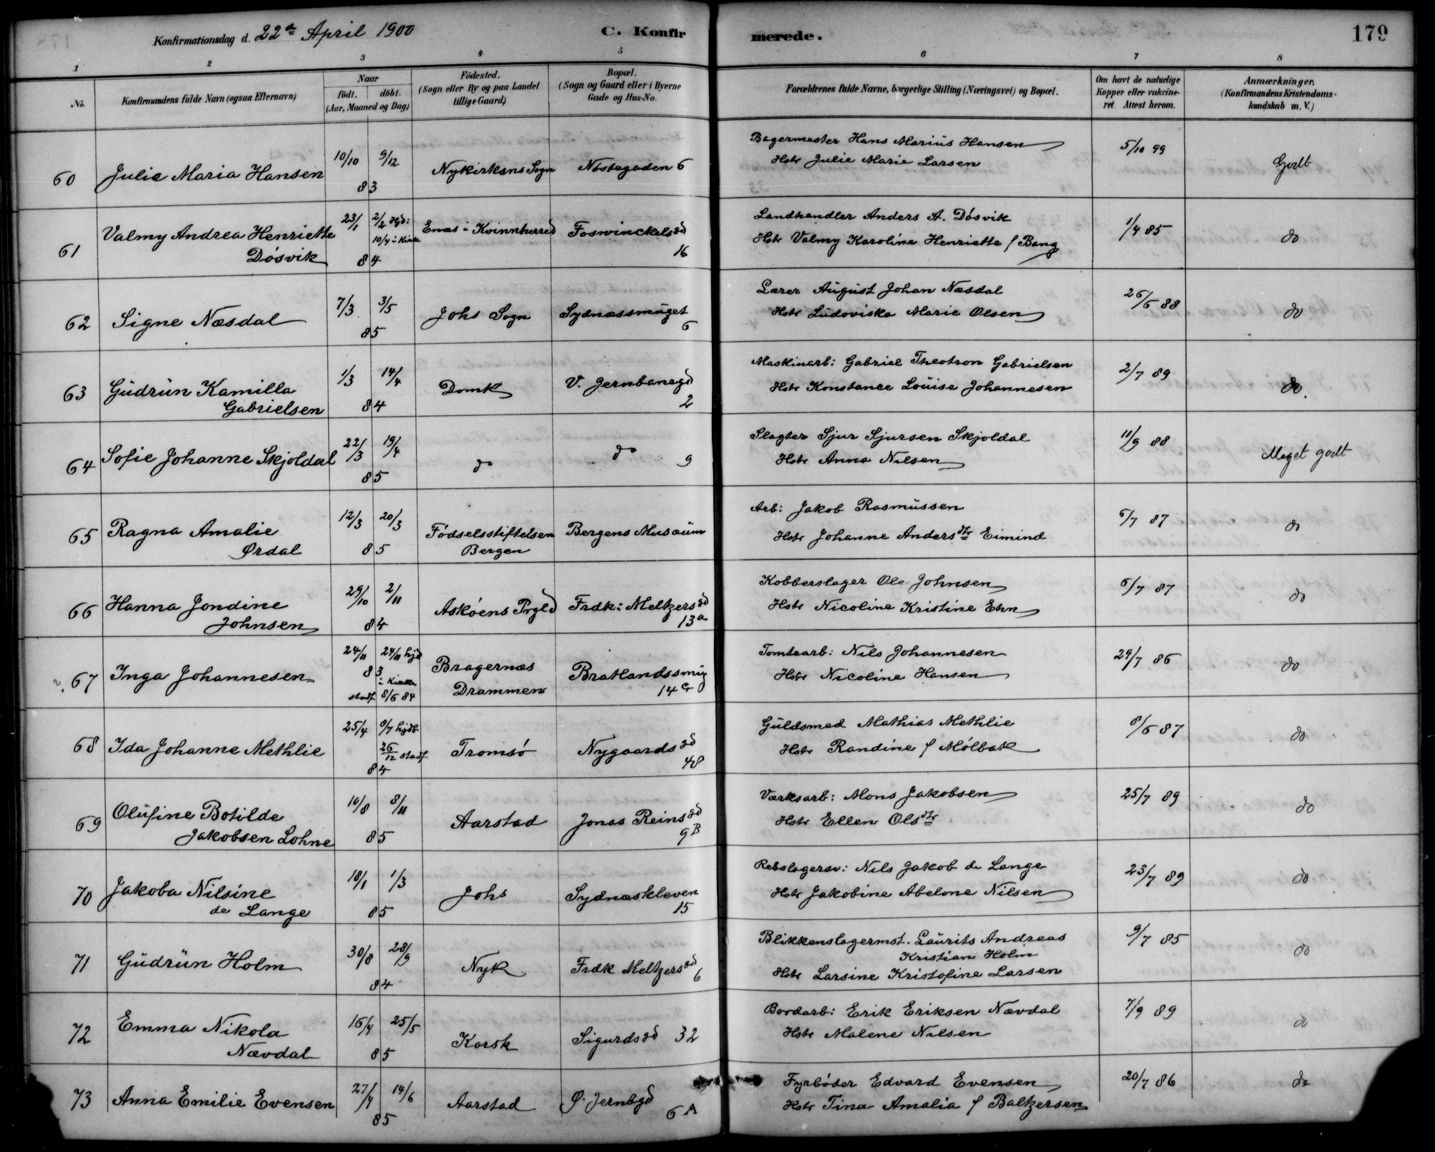 Konfirmationsdag d. 22de April 1900 C. Konfirmerede. 179
1 2 3 4 5 6 7 8
No. Konfirmandens fulde Navn (ogsaa Efternavn) Naar født. døbt. (Aar, Maaned og Dag) Fødested. (Sogn eller By og paa Landet tillige Gaard) Bopæl. (Sogn og Gaard eller i Byerne Gade og Hus-No. Forældrenes fulde Navne, borgerlige Stilling (Næringsvei) og Bopæl. Om havt de naturlige Kopper eller vaccineret. Attest herom. Anmærkninger. (Konfirmandens Kristendomskundskab m. V.)
60 Julie Maria Hansen 10/10 9/12 83 Nykirkens Sogn Nøstegaden 6 Bagermester Hans Marius Hansen 5/10 99 Godt
Hstr Julie Marie Larsen
61 Valmy Andrea Henriette 23/1 2/2 Hjd: Enæs i Kvinnherred Foswinckelsgd Landhandler Anders A. Døsvik 1/4 85 do
Døsvik 84 10/4 i Kirke 16 Hstr Valmy Karoline Henriette f Bang
62 Signe Næsdal 7/3 3/5 85 Johs Sogn Sydnæssmuget 6 Lærer August Johan Næsdal 26/6 88 do
Hstr Ludoviska Marie Olsen
63 Gudrun Kamilla 1/3 14/4 Domk V. Jernbanegd Maskinarb: Gabriel Theotron Gabrielsen 2/7 89 do.
Gabrielsen 84 2 Hstr Konstance Louise Johannesen
64 Sofie Johanne Skjoldal 22/3 19/4 85 do do 9 Slagter Sjur Sjursen Skjoldal 11/9 88 Meget godt
Hstr Anna Nilsen
65 Ragna Amalie 12/3 20/3 Fødselsstiftelsen Bergens Musæum Arb: Jakob Rasmussen 6/7 87 do
Ørdal 85 Bergen Hstr Johanne Andersdtr Eimind
66 Hanna Jondine 29/10 2/11 Askøens Prgld Frdk: Meltzersgd Kobberslager Ole Johnsen 6/7 87 do
Johnsen 84 13a Hstr Nicoline Kristine Ehn
67 Inga Johannesen 24/11 29/11 hjd Bragernæs Bratlandssmug Tomtearb: Nils Johannesen 29/7 86 do
83 i Kirken stadf 8/6 84 Drammen 14c Hstr Nicoline Hansen
68 Ida Johanne Methlie 25/4 9/7 hjdb Tromsø Nygaardsgd Guldsmed Mathias Methlie 8/6 87 do
84 26/12 stadf 48 Hstr Randine f Mølbak
69 Olufine Botilde 10/8 8/11 Aarstad Jonas Reinsgd Værksarb: Mons Jakobsen 25/7 89 do
Jakobsen Lohne 85 9B Hstr Ellen Olsdtr
70 Jakoba Nilsine 18/1 1/3 Johs Sydnæskleven Rebslagersv: Nils Jakob de Lange 23/7 89 do
de Lange 85 15 Hstr Jakobine Abelone Nilsen
71 Gudrun Holm 30/8 28/9 Nyk Frdk Meltzersgd Blikkenslagermst. Laurits Andreas 9/7 85 do
84 6 Kristian Holm
Hstr Larsine Kristofine Larsen
72 Emma Nikola 16/4 25/5 Korsk Sigurdsgd 32 Bordarb: Erik Eriksen Nævdal 7/9 89 do
Nævdal 85 Hstr Malene Nilsen
73 Anna Emilie Evensen 27/4 14/6 Aarstad Ø. Jernbgd Fyrbøder Edvard Evensen 20/7 86 do
85 6A Hstr Tina Amalia f Baltzersen